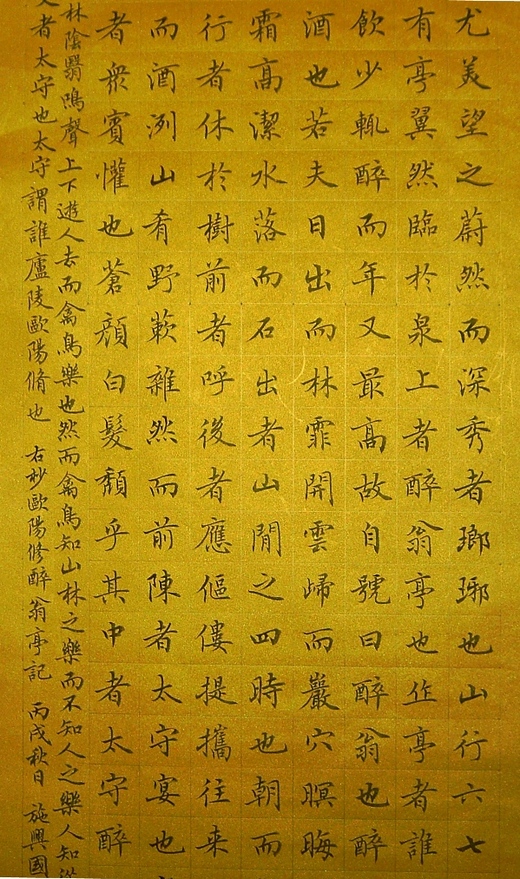 尤美望之蔚然而深秀者瑯琊也山行六七
有亭翼然臨於泉上者醉翁亭也作亭者誰
飲少輒醉而年又最高故自號曰醉翁也醉
酒也若夫日出而林霏開雲歸而巖穴暝晦
霜高潔水落而石出者山間之四時也朝而
行者休於樹前者呼後者應傴僂提攜往来
而酒洌山肴野蔌雜然而前陳者太守宴也
者衆賓懽也蒼顏白髮頹乎其中者太守醉
林陰翳鳴聲上下遊人去而禽鳥樂也然而禽鳥知山林之樂而不知人之樂人知從
者太守也太守謂誰廬陵歐陽脩也 右抄歐陽修醉翁亭記 丙戌秋日 施興國